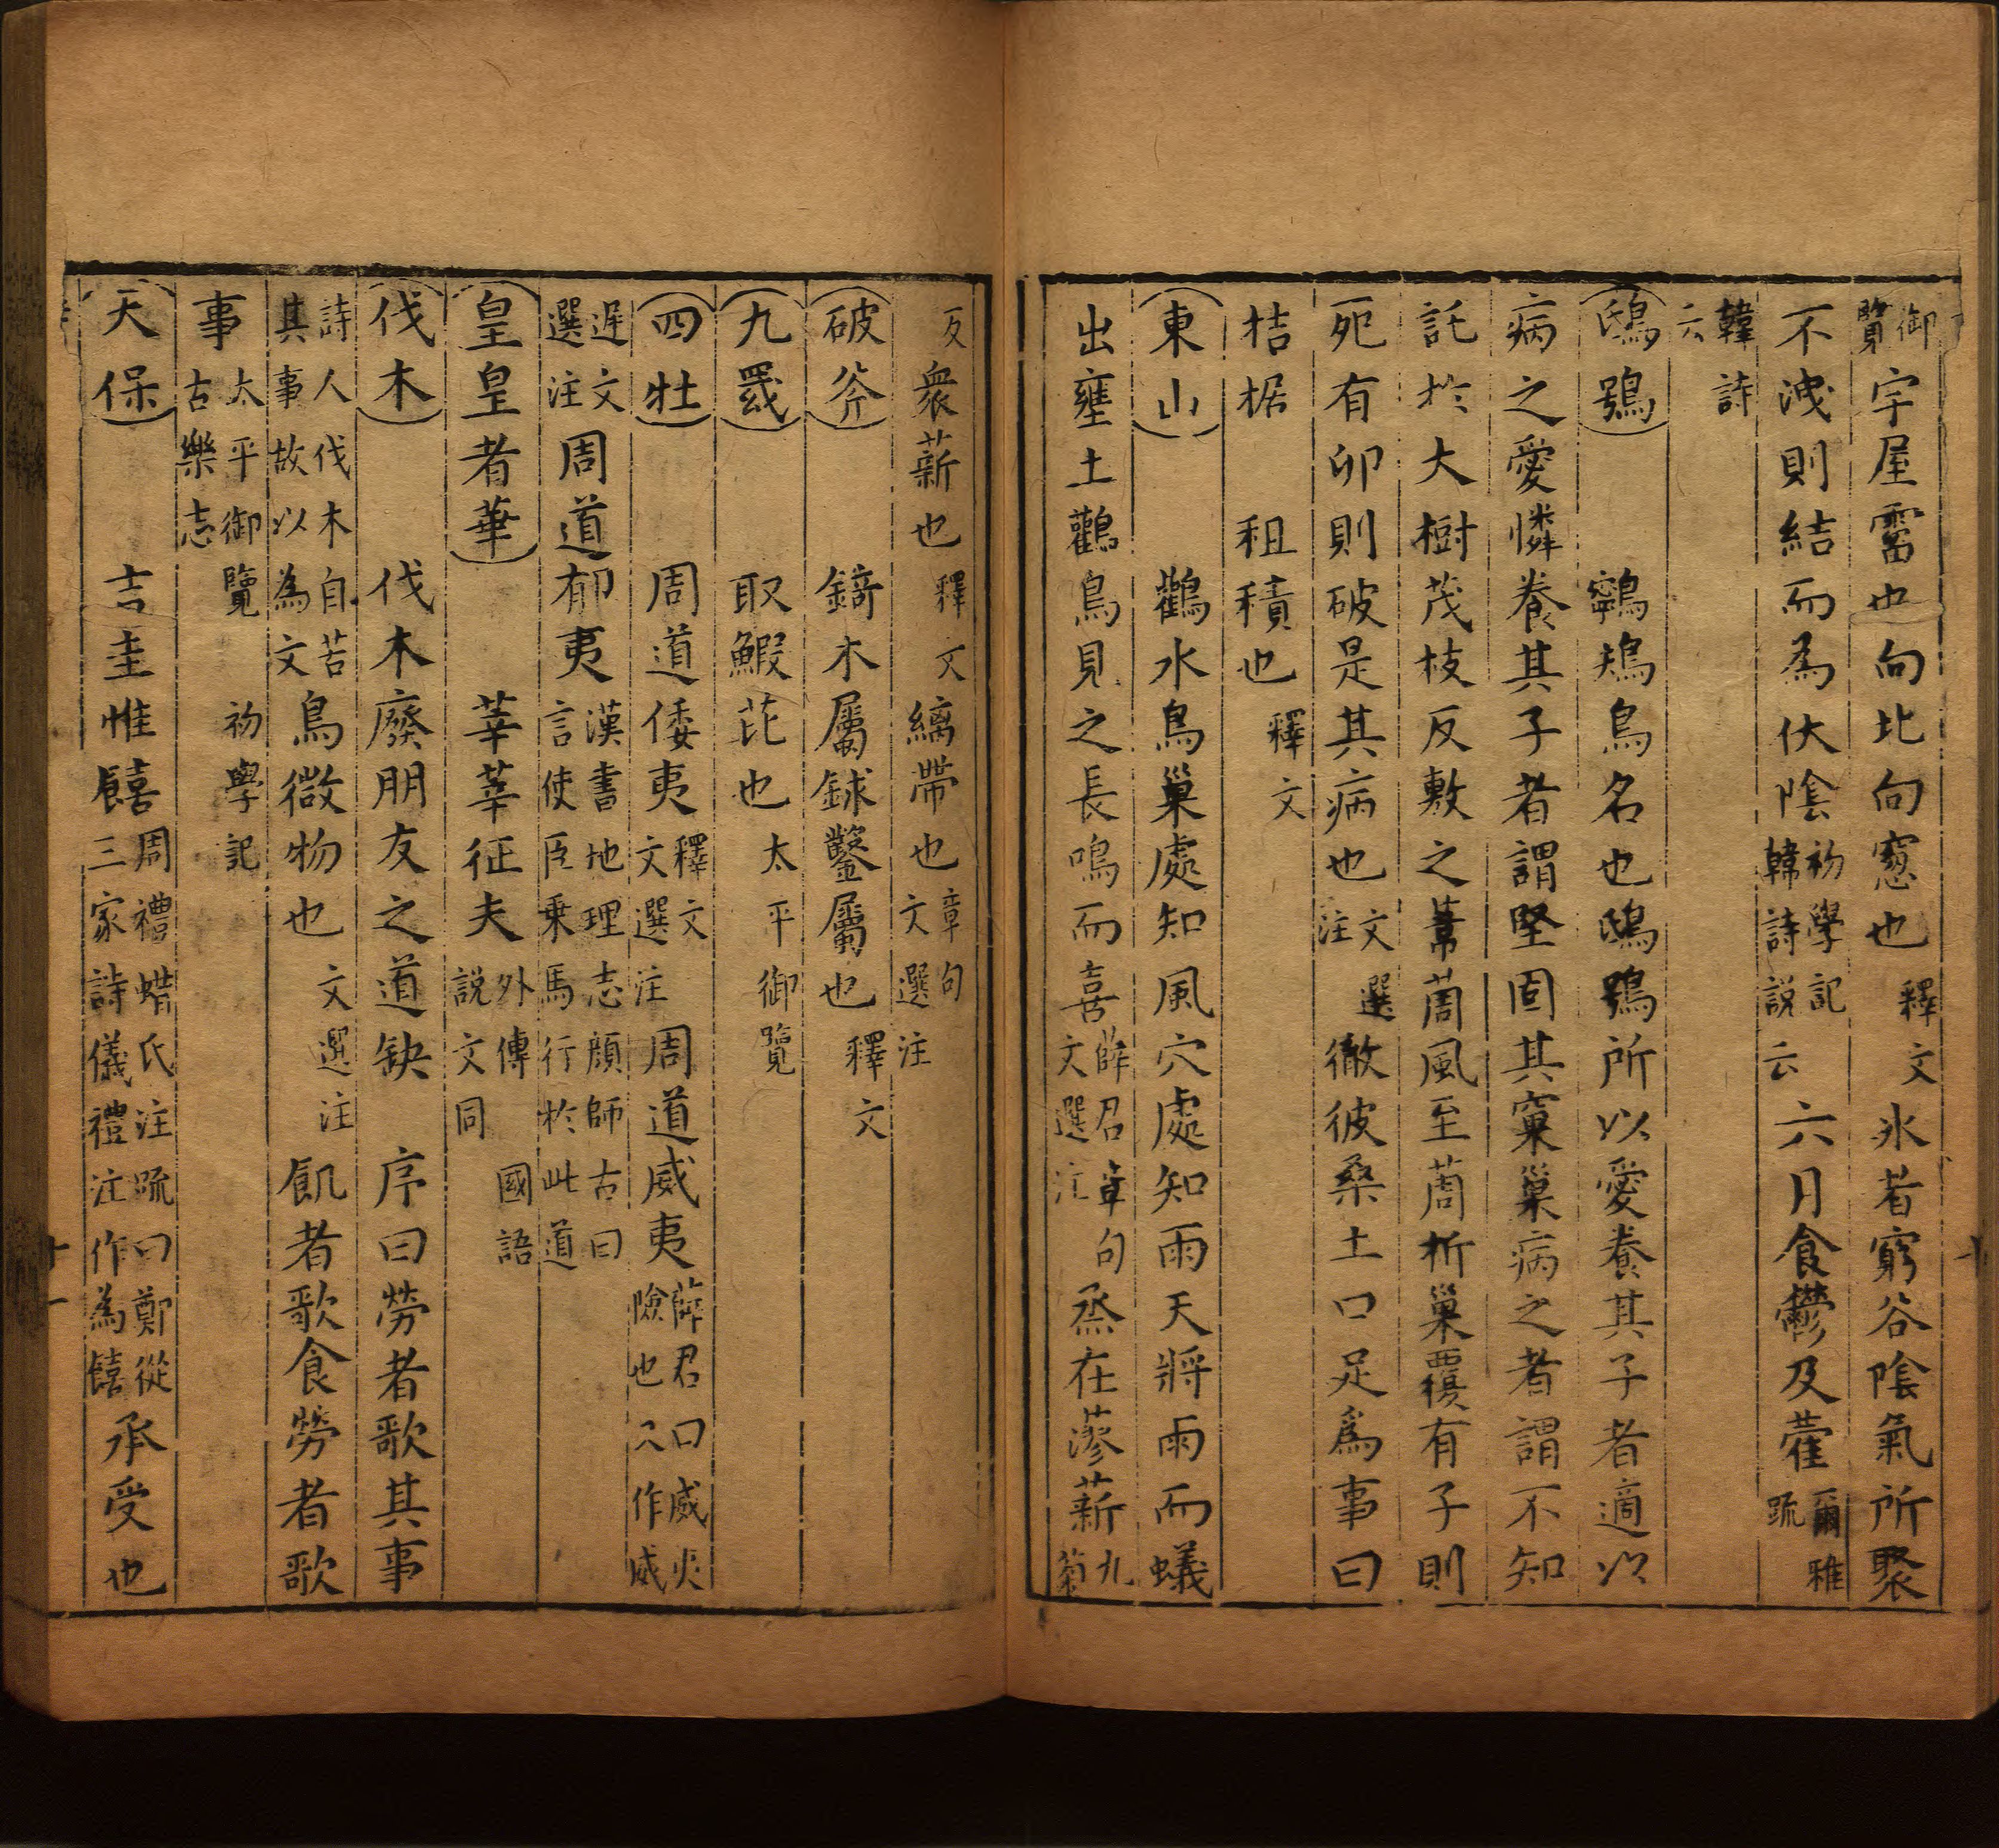 御覽宇屋霤也向北向窻也釋文氷者窮谷陰氣所聚
不洩則結而為伏陰初學記韓詩説云六月食鬱及藿爾雅疏
韓詩云
鴟鴞 鸋鴂鳥名也鴟鴞所以愛養其子者適以
病之愛憐養其子者謂堅固其窠巢病之者謂不知
託於大樹茂枝反敷之葦䔥風至䔥折巢覆有子則
死有卵則破是其病也文選注徹彼桑土口足爲事曰
拮据 租積也釋文
東山 鸛水鳥巢處知風穴處知雨天將雨而蟻
出壅土鸛鳥見之長鳴而喜薛君章句文選注烝在蓼薪九菊
反衆薪也釋文縭帶也章句文選注
破斧 錡木屬銶鑿屬也釋文
九罭 取鰕芘也太平御覽
四牡 周道倭夷釋文文選注周道威夷薛君曰威夷險也又作威
遲文選注周道郁夷漢書地理志顔師古曰言使臣乗馬行於此道
皇皇者華 莘莘征夫外傳説文同國語
伐木 伐木廢朋友之道缺 序曰勞者歌其事
詩人伐木自苦其事故以為文鳥微物也文選注飢者歌食勞者歌
事太平御覽初學記古樂志
天保 吉圭惟饎周禮蜡氏注疏曰鄭從三家詩儀禮注作為饎承受也
十一